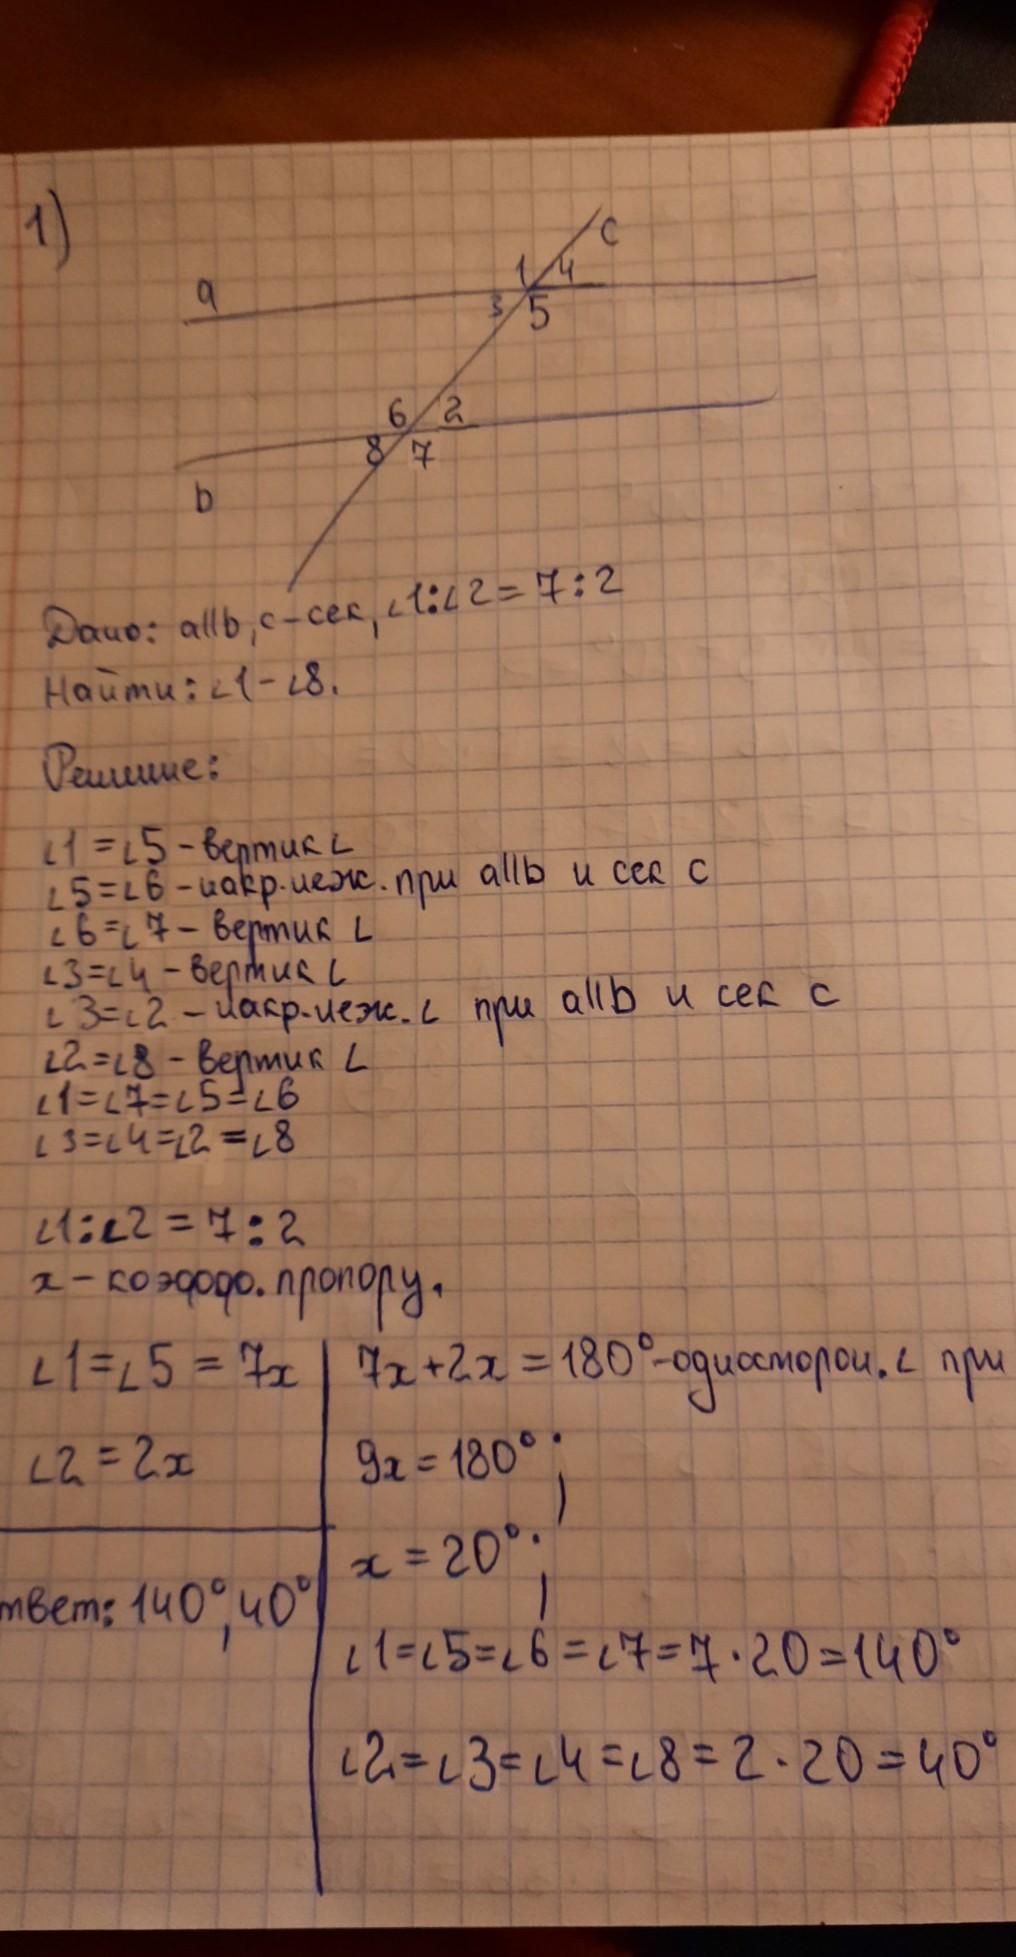 1)
c
a
1 4
3 5
6 2
8 7
b
Дано: a||b, c-сек, ∠1:∠2=7:2
Найти: ∠1-∠8.
Решение:
∠1=∠5-вертик∠
∠5=∠6-накр.леж. при a||b и сек c
∠6=∠7- вертик ∠
∠3=∠4-вертик∠
∠3=∠2-накр.леж.∠ при a||b и сек c
∠2=∠8-вертик ∠
∠1=∠7=∠5=∠6
∠3=∠4=∠2=∠8
∠1:∠2=7:2
x-коэфф. пропорц.
∠1=∠5=7x
∠2=2x
твет: 140°, 40°
7x+2x=180°-односторон.∠ при
9x=180°;
x=20°;
∠1=∠5=∠6=∠7=7·20=140°
∠2=∠3=∠4=∠8=2·20=40°